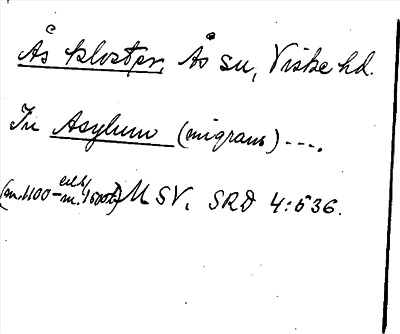 Ås kloster, Ås sn, Viske hd.
In Asylum (migrans) ----.
(m. 1100- m. 1500t) MSV. SRD 4:536.